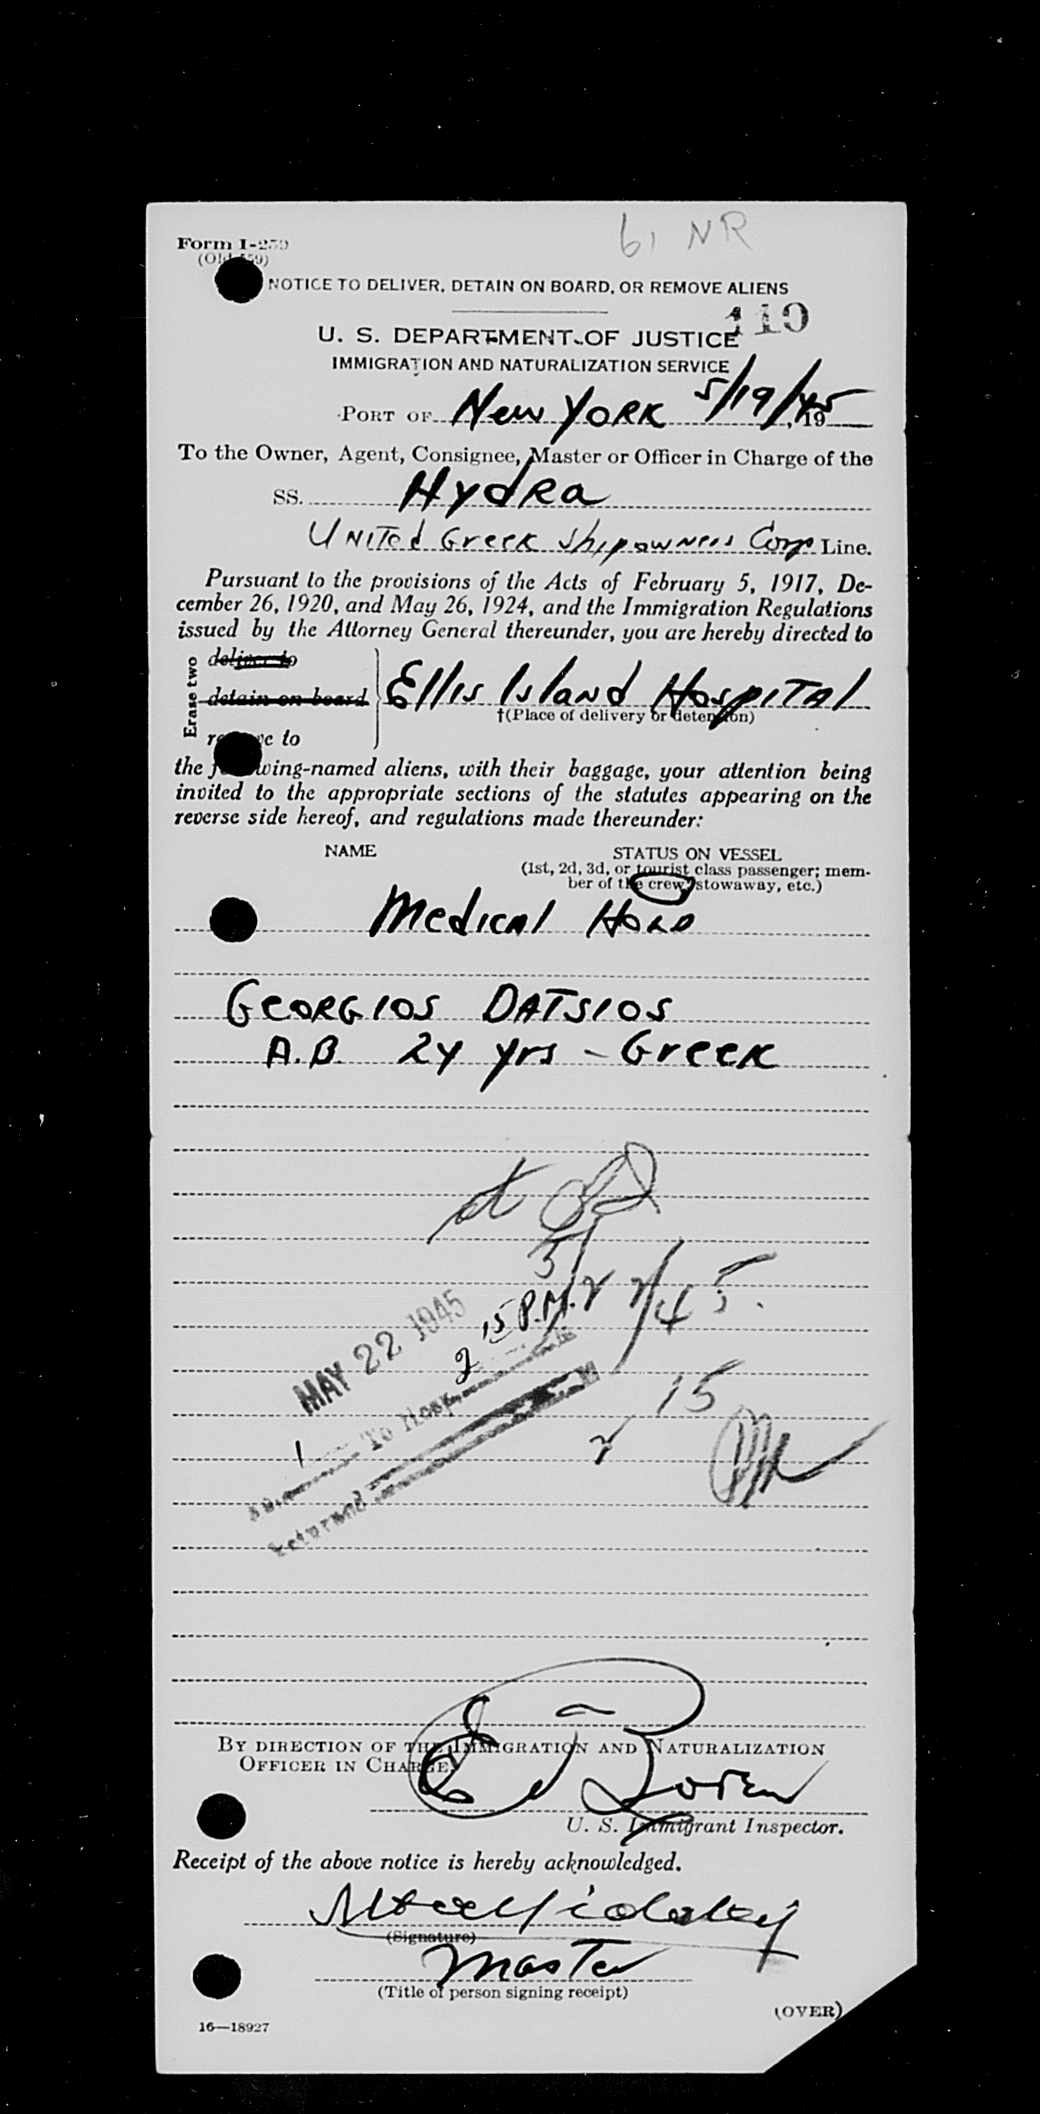 6, NR
Form I-259
(Old 559)
NOTICE TO DELIVER, DETAIN ON BOARD, OR REMOVE ALIENS
110
U. S. DEPARTMENT OF JUSTICE
IMMIGRATION AND NATURALIZATION SERVICE
PORT OF New YORK 5/19/45, 19
To the Owner, Agent, Consignee, Master or Officer in Charge of the
SS. HydRa
UNITed Greek Shipowners Corp Line.
Pursuant to the provisions of the Acts of February 5, 1917, De-
cember 26, 1920, and May 26, 1924, and the Immigration Regulations
issued by the Attorney General thereunder, you are hereby directed to
Erase two
deliver to
detain on board
remove to
Ellis Island HospITAl
†(Place of delivery or detention)
the following-named aliens, with their baggage, your attention being
invited to the appropriate sections of the statutes appearing on the
reverse side hereof, and regulations made thereunder:
NAME
STATUS ON VESSEL
(1st, 2d, 3d, or tourist class passenger; mem-
ber of the crew, stowaway, etc.)
Medical Hold
GEORGIOS DATSIOS
A.B. 24 yrs - Greek
5/22/45.
MAY 22 1945
2 15 P.M.
1 To Hosp.
Returned
2 15
BY DIRECTION OF THE IMMIGRATION AND NATURALIZATION
OFFICER IN CHARGE
U. S. Immigrant Inspector.
Receipt of the above notice is hereby acknowledged.
(Signature)
Master
(Title of person signing receipt)
(OVER)
16—18927